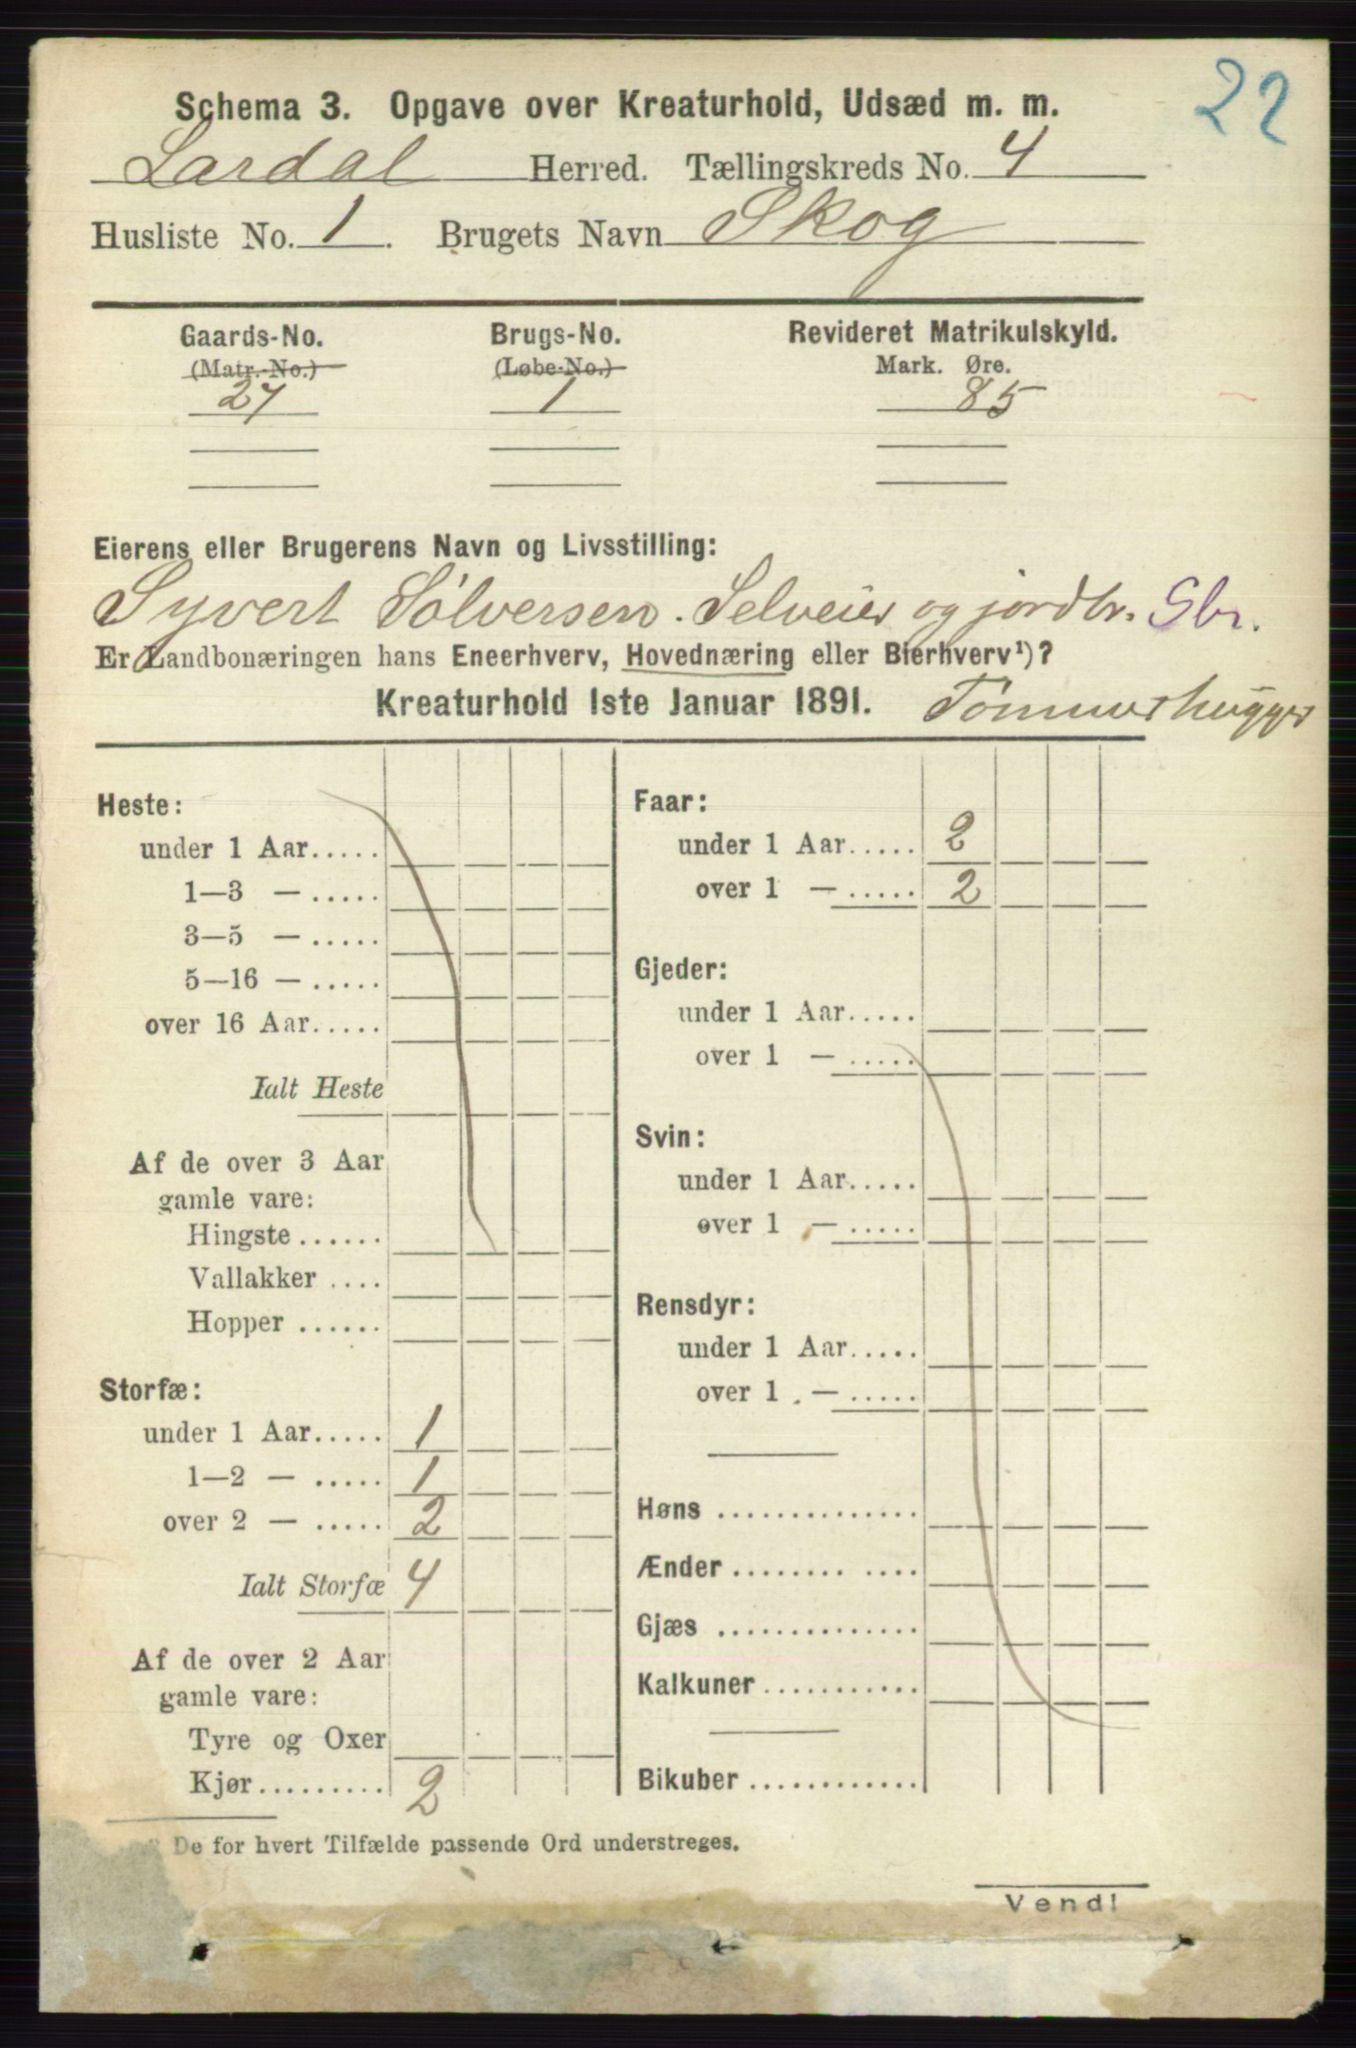 22
Schema 3. Opgave over Kreaturhold, Udsæd m. m.
Lardal Herred. Tællingskreds No. 4
Husliste No. 1. Brugets Navn Skog
Gaards-No. Brugs-No. Revideret Matrikulskyld.
(Matr.-No.) (Løbe-No.) Mark. Øre.
27 1 85
Eierens eller Brugerens Navn og Livsstilling:
Syvert Sølversen. Selveier og jordbr. Gbr.
Er Landbonæringen hans Eneerhverv, Hovednæring eller Bierhverv¹)?
Kreaturhold 1ste Januar 1891. Tømmerhugger
Heste:
under 1 Aar.....
1—3 — .....
3—5 — .....
5—16 — .....
over 16 Aar.....
Ialt Heste
Af de over 3 Aar
gamle vare:
Hingste ......
Vallakker ....
Hopper ......
Storfæ:
under 1 Aar..... 1
1—2 — ..... 1
over 2 — ..... 2
Ialt Storfæ 4
Af de over 2 Aar
gamle vare:
Tyre og Oxer
Kjør.......... 2
Faar:
under 1 Aar..... 2
over 1 — ..... 2
Gjeder:
under 1 Aar.....
over 1 — .....
Svin:
under 1 Aar.....
over 1 — .....
Rensdyr:
under 1 Aar.....
over 1 — .....
Høns ..............
Ænder ........ ....
Gjæs ..............
Kalkuner...........
Bikuber ............
De for hvert Tilfælde passende Ord understreges.
Vend!